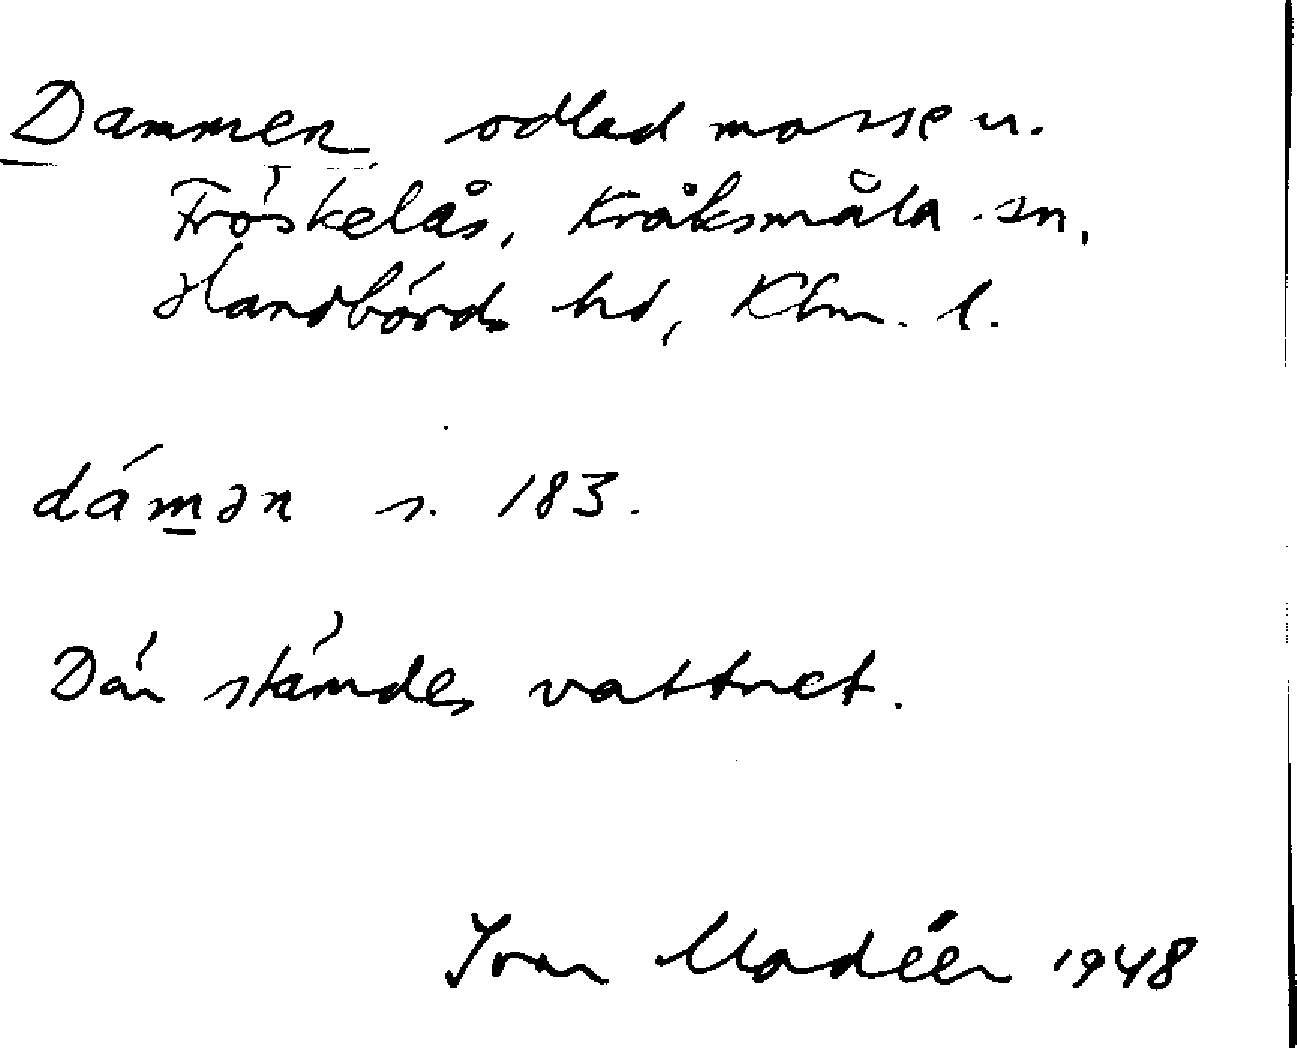 Dammen, odlad mosse u.
Fröskelås, Kråksmåla sn,
Handbörds hd, Klm. l.
dámən s. 183.
Där stämdes vattnet.
Ivar Modéer 1948